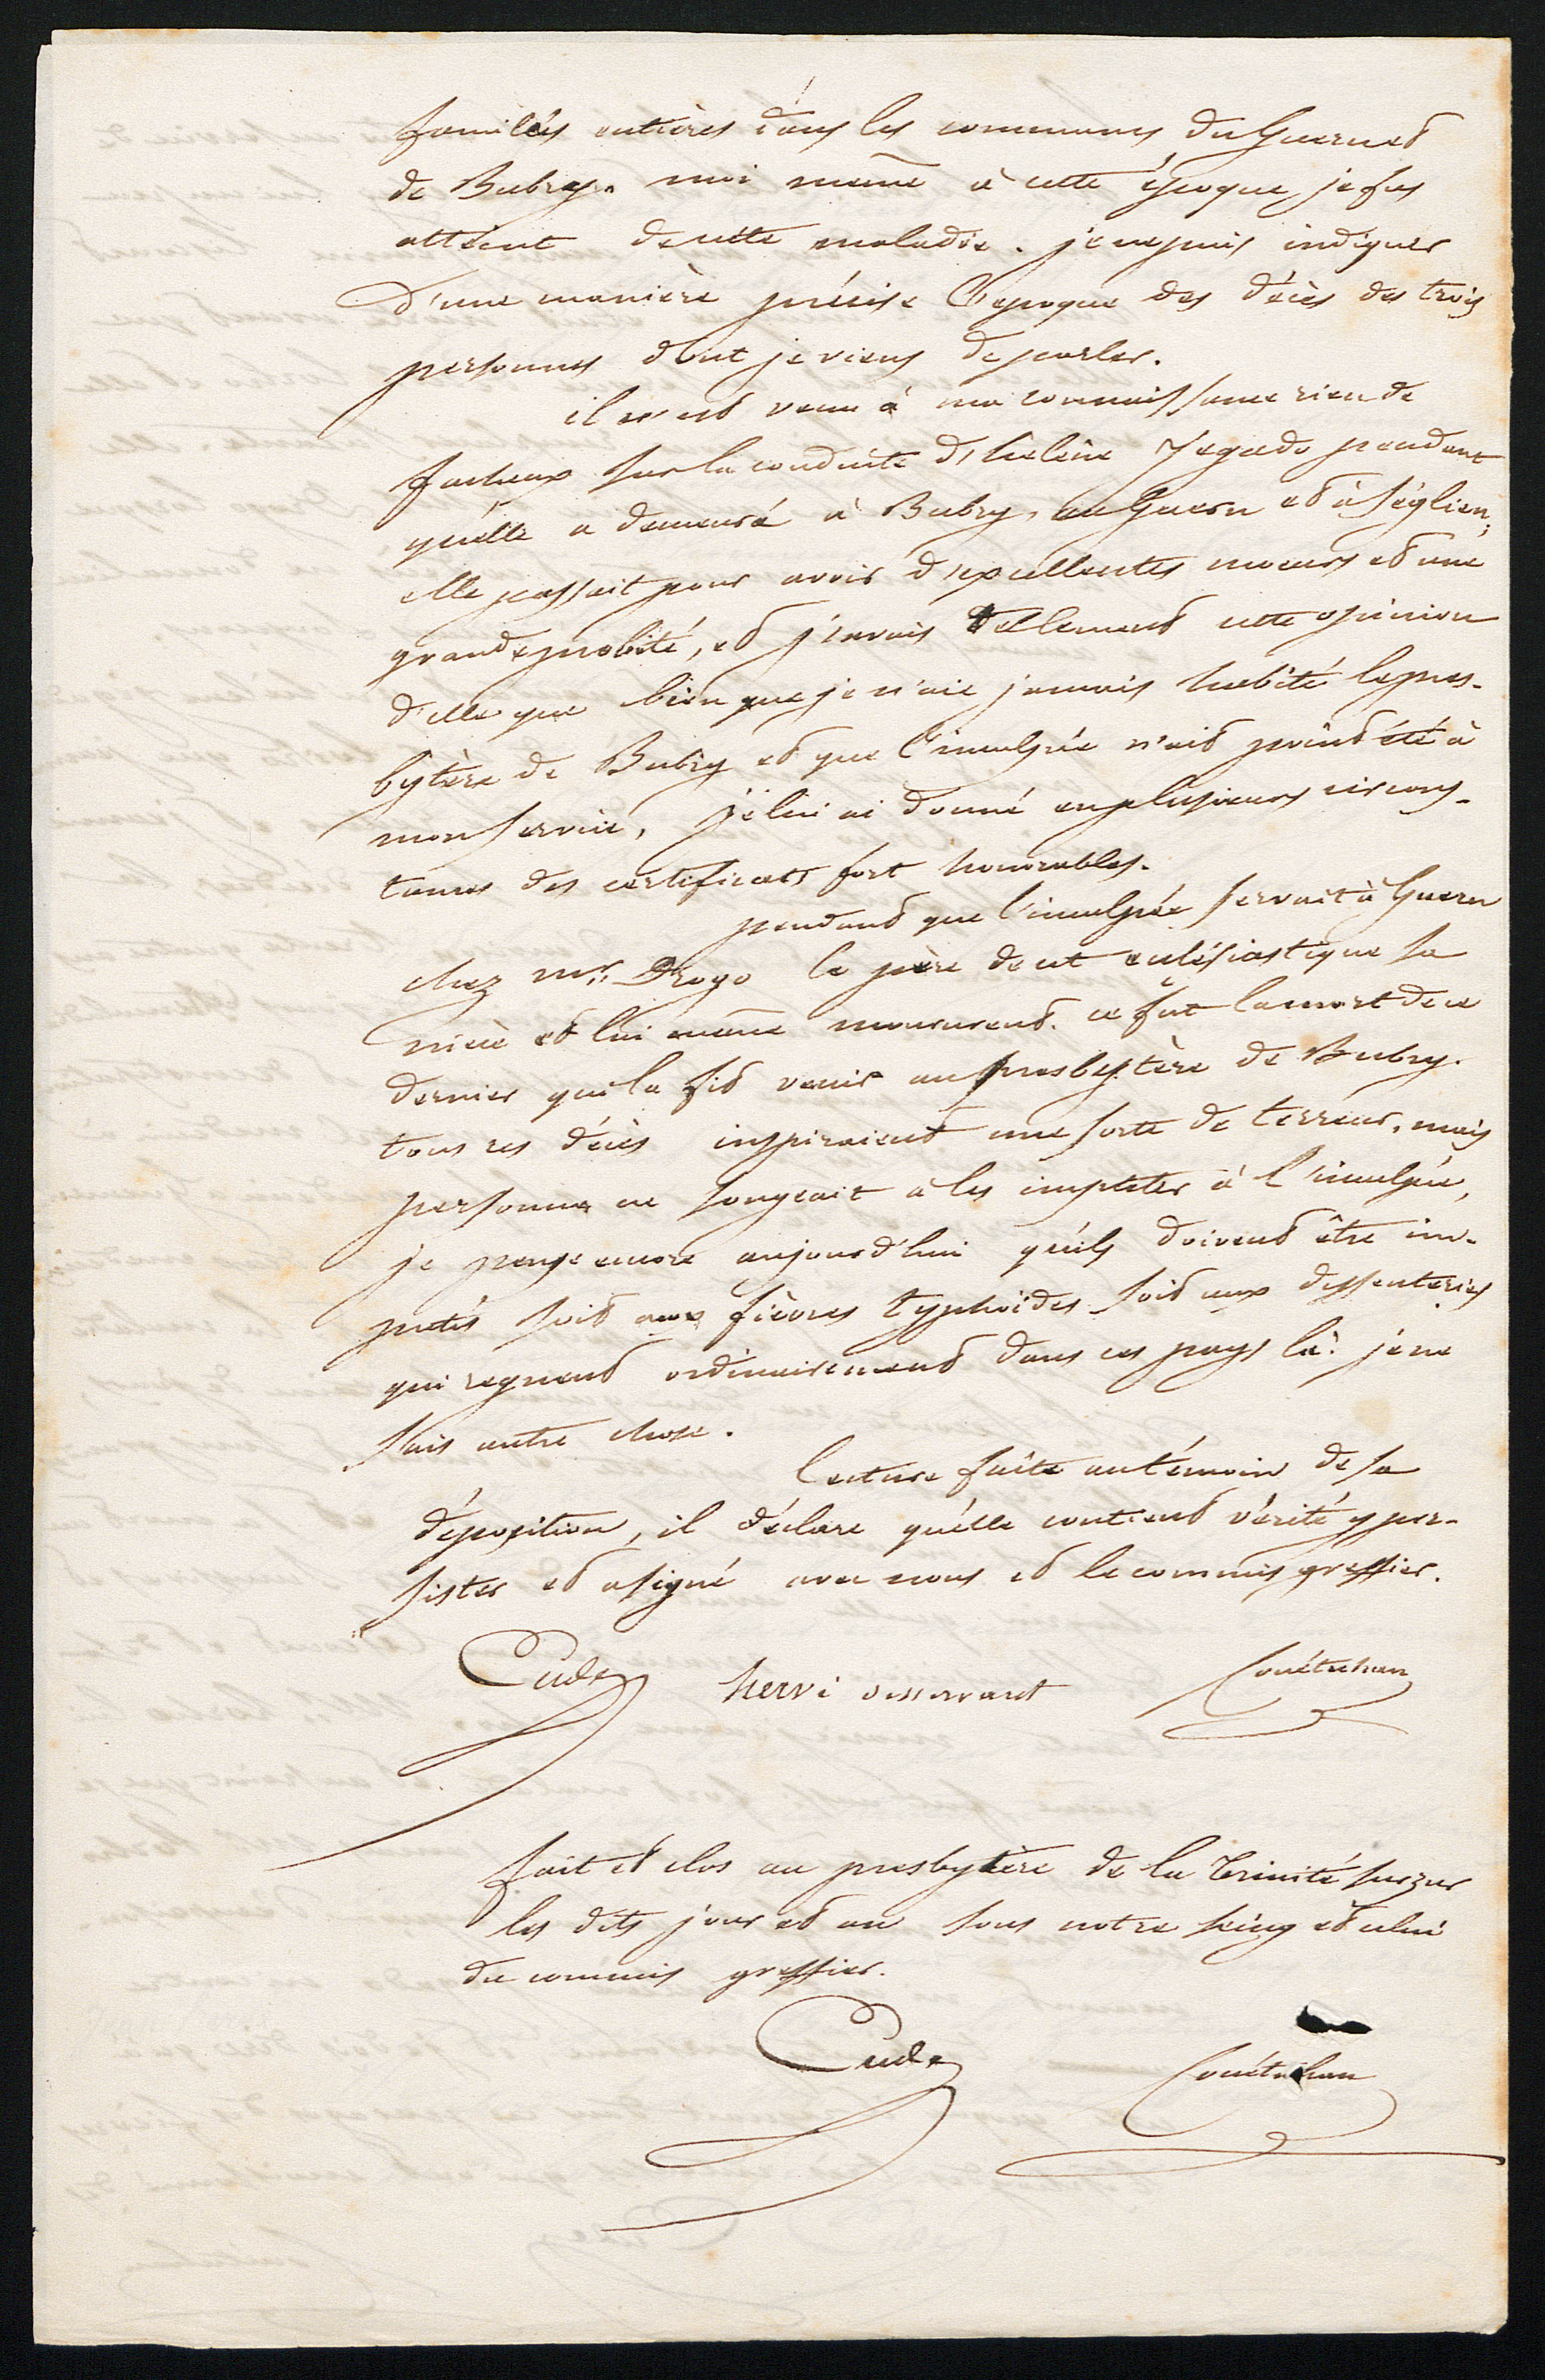 familles entières dans les communes du Guern et
de Bubry. moi même à cette époque je fus
atteint de cette maladie. je ne puis indiquer
d'une manière précise l'epoque des décès des trois
personnes dont je viens de parler.
il n'est venu à ma connaissance rien de
facheux sur la conduite d'hélène Jegado pendant
qu'elle a demeuré à Bubry, au Guern et à séglien;
elle passait pour avoir d'excellentes moeurs et une
grande probité, et j'avais tellement cette opinion
d'elle que bien que je n'aie jamais habité le pres-
bytère de Bubry et que l'inculpée n'ait point été à
mon service, je lui ai donné en plusieurs circons-
tances des certificats fort honorables.
pendant que l'inculpée servait à Guern
chez mr. Drogo le père de cet eclésiastique sa
nièce et lui même moururent. ce fut la mort de ce
dernier qui la fit venir au presbytère de Bubry.
tous ces décès inspiraient une sorte de terreur, mais
personne ne songeait à les imputer à l'inculpée,
je pense encore aujourd'hui qu'ils doivent être im-
putés soit aux fièvres typhoïdes soit aux dyssenteries
qui regnent ordinairement dans ces pays là. je ne
sais autre chose.
Lecture faite au témoin de sa
déposition, il déclare qu'elle contient vérité y per-
sister et a signé avec nous et le commis greffier.
hervé desservant
fait et clos au presbytère de la trinité surzur
les dits jour et an sous notre seing et celui
du commis greffier.